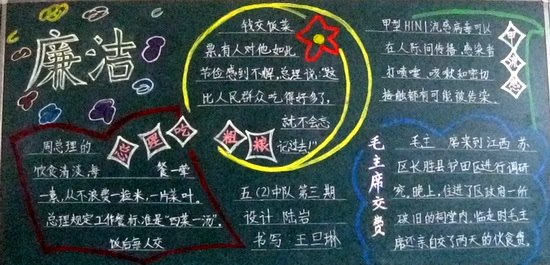 廉洁
总理吃粗粮
周总理的
饮食清淡,每餐一荤
一素,从不浪费一粒米,一片菜叶。
总理规定工作餐标准是“四菜一汤”,
饭后每人交
钱交饭菜
票,有人对他如此
节俭感到不解,总理说:“这
比人民群众吃得好多了,
就不会忘
记过去!”
五(2)中队第三期
设计 陆岩
书写 王卫琳
甲型H1N1流感病毒可以
在人际间传播,感染者
打喷嚏、咳嗽和密切
接触都有可能被传染。
毛主席交费
毛主席来到江西苏
区长胜县铲田区进行调研
究。晚上,住进了区政府一所
破旧的祠堂内,临走时毛主
席还亲自交了两天的伙食费。